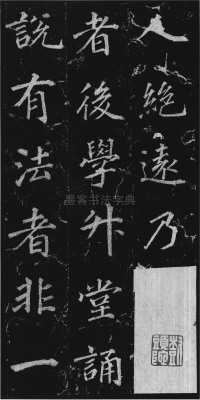 人絕遠乃
者後學升堂誦
說有法者非一
墨客书法字典